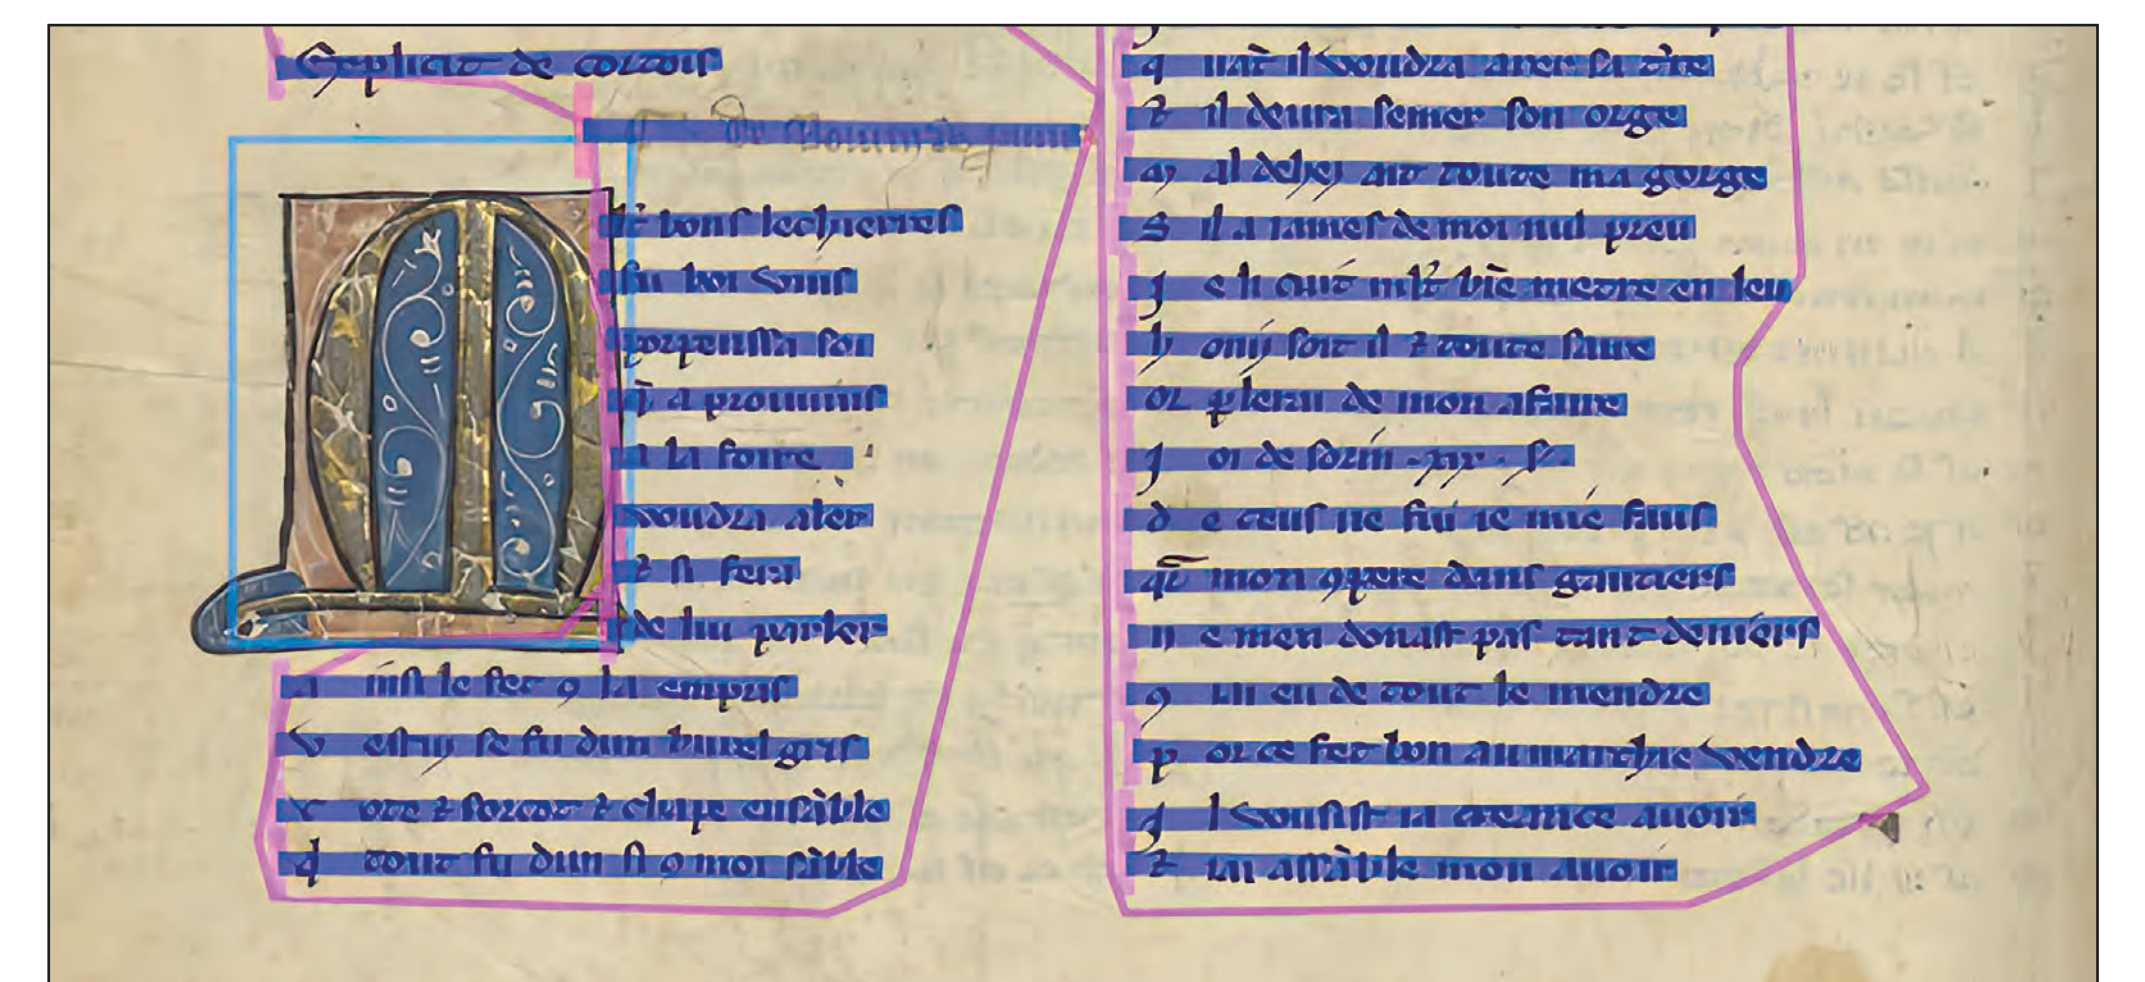 Explicit de cortois
De
M lt bons lechierres
fu boi vins
porpenssa soi
q̄ a prouuins
a la foire
voudra aler
⁊ si fera
de lui parler
a insi le fet ꝯ la empris
v estuz se fu dun burel gris
c ote ⁊ sorcot ⁊ chape ensāble
q tout fu dun si ꝯ moi sāble
q uāt il voudra auer sa t're
⁊ il deura semer son orge
m al dehez ait toute ma gorge
S il a iames de moi nul preu
j e li cuit mlt biē metre en leu
h oniz soit il ⁊ toute faire
or ꝑlerai de mon afaire
j oi de sorin .xix. s.
d e ceus ne fui ie mie faus
qͥ mon ꝯpere dans gautiers
n e men donast pas tant deniers
ꝯ iai eu de tout le mendre
p or ce fet bon au marchie vendre
j l vousist ia creance auoir
⁊ iai assāble mon auoir